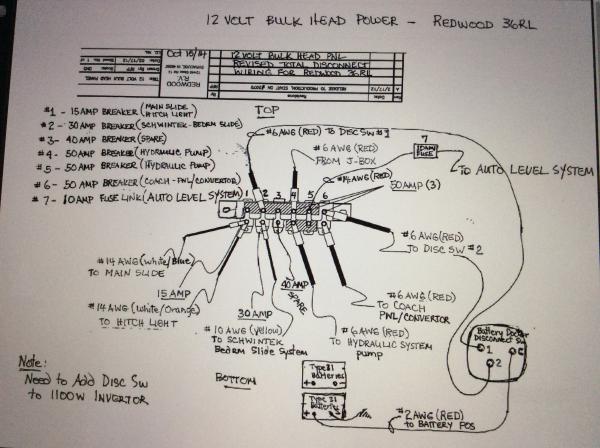 12 VOLT BULK HEAD POWER - REDWOOD 36RL
Oct 10/14
12 VOLT BULK HEAD PNL
REVISED TOTAL DISCONNECT
WIRING FOR REDWOOD 36RL
REDWOOD
RV
Revisions
#1 - 15 AMP BREAKER (MAIN SLIDE
HITCH LIGHT)
#2 - 30 AMP BREAKER (SCHWINTEK - BEDRM SLIDE)
#3 - 40 AMP BREAKER (SPARE)
#4 - 50 AMP BREAKER (HYDRAULIC PUMP)
#5 - 50 AMP BREAKER (HYDRAULIC PUMP)
#6 - 50 AMP BREAKER (COACH - PNL/CONVERTOR)
#7 - 10 AMP FUSE LINK (AUTO LEVEL SYSTEM)
TOP
#6 AWG (RED) TO DISC SW #1
#6 AWG (RED)
FROM J-BOX
7
10 AMP
FUSE
TO AUTO LEVEL SYSTEM
#14 AWG (RED)
50 AMP (3)
1 2 3 4 5 6
#6 AWG (RED)
TO DISC SW #2
#14 AWG (White/Blue)
TO MAIN SLIDE
15 AMP
#14 AWG (White/Orange)
TO HITCH LIGHT
30 AMP
40 AMP
SPARE
#10 AWG (Yellow)
TO SCHWINTEK
Bedrm Slide System
#6 AWG (RED)
TO HYDRAULIC SYSTEM
pump
#6 AWG (RED)
TO COACH
PNL/CONVERTOR
Battery Doctor
Disconnect SW
1
2
Note:
Need to Add Disc Sw
to 1100W INVERTOR
BOTTOM
Type 31
Batteries
+ -
Type 31
Batteries
+ -
#2 AWG (RED)
TO BATTERY POS